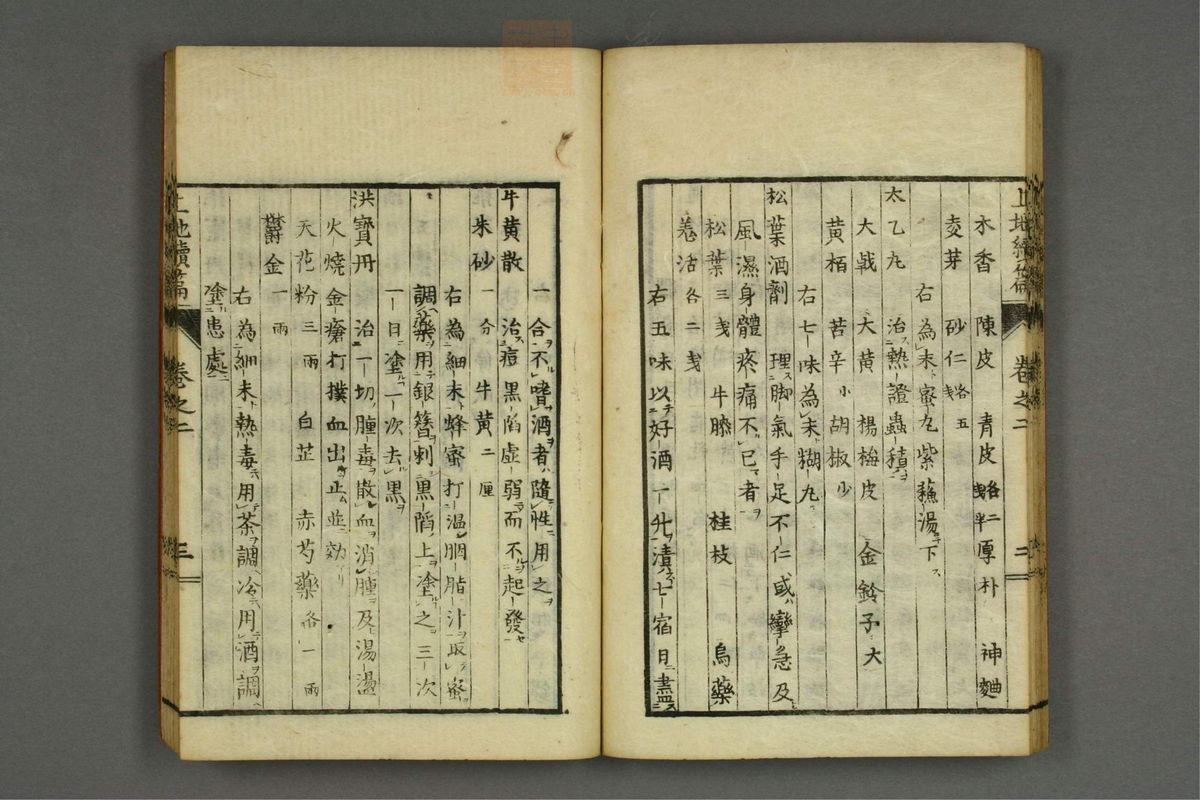 上池續篇 卷之二 二
木香 陳皮 青皮 各二戔半 厚朴 神麯
麦芽 砂仁 各五戔
右為末蜜丸紫蘓湯下ス
太乙丸 治熱證蟲積ヲ
大戟 大黄 楊梅皮 金鈴子 大
黄栢 苦辛 小 胡椒 少
右七味為末糊丸
松葉酒劑 理脚氣手足不仁或ハ攣急及
風濕身體疼痛不已者ヲ
松葉 三戔 牛膝 桂枝 烏藥
羗活 各二戔
右五味以好酒一升漬七宿日二盡ス
一合不嗜酒者ハ隨性用之ヲ
牛黄散 治痘黒陷虚弱而不起發セ
朱砂 一分 牛黄 二厘
右為細末蜂蜜打溫胭脂汁ヲ取蜜
調藥用銀簪刺黒陷上塗之ヲ三次
一日塗一次去黒ヲ
洪寶丹 治一切腫毒散血消腫及湯盪
火燒金瘡打撲血出止並效アリ
天花粉 三兩 白芷 赤芍藥 各一兩
欝金 一兩
右為細末熱毒用茶調冷用酒調
塗患處ニ
上池續篇 卷之二 三